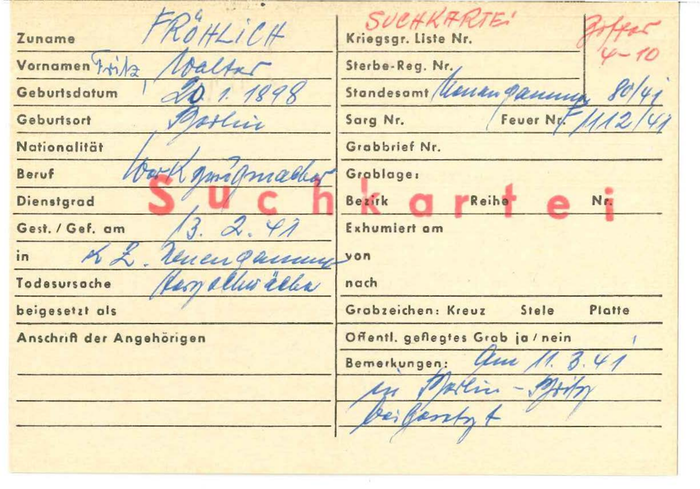 Zuname FRÖHLICH
Vornamen Fritz Walter
Geburtsdatum 20.1.1898
Geburtsort Berlin
Nationalität
Beruf Werkzeugmacher
Dienstgrad
Gest./Gef. am 13.2.41
in KZ. Neuengamme
Todesursache Herzschwäche
beigesetzt als
Anschrift der Angehörigen
Suchkartei
SUCHKARTEI
4-10
Kriegsgr. Liste Nr.
Sterbe-Reg. Nr.
Standesamt Neuengamme 80/41
Sarg Nr. Feuer Nr. F 1112/41
Grabbrief Nr.
Grablage:
Bezirk Reihe Nr.
Exhumiert am
von
nach
Grabzeichen: Kreuz Stele Platte
Öffentl. gepflegtes Grab ja/nein
Bemerkungen: Am 11.3.41
in Berlin-Britz
beigesetzt